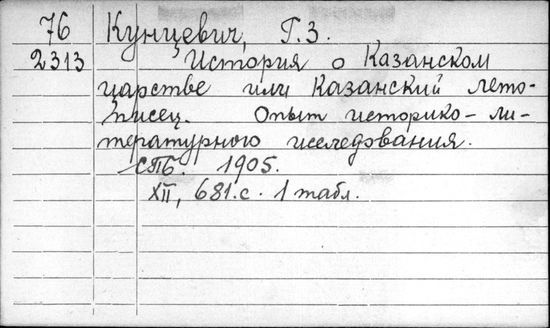 76 Кунцевич, Г.З.
2313 История о Казанском
царстве или Казанский лето-
писец. Опыт историко-ли-
тературного исследования.
СПб. 1905.
XII, 681.с. 1 табл.